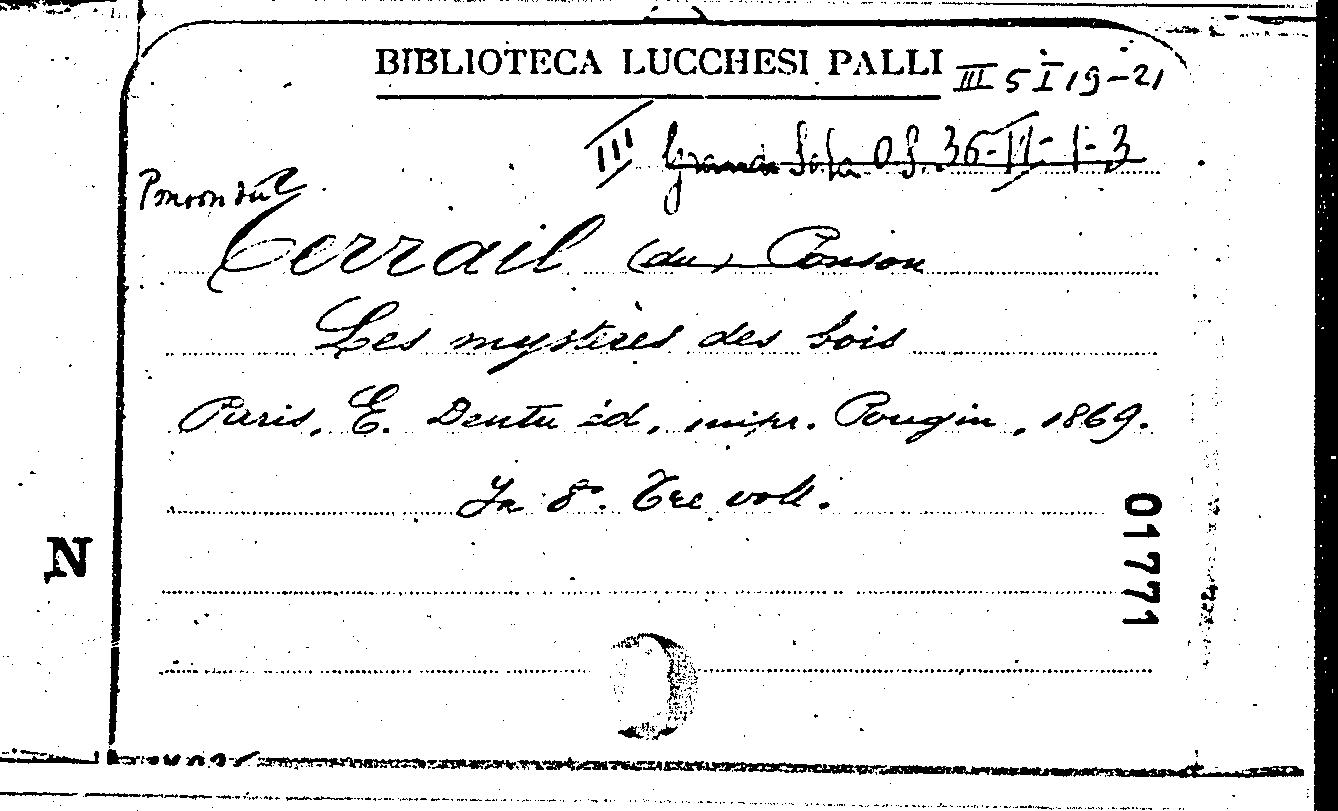 BIBLIOTECA LUCCHESI PALLI
III 5 I 19-21
III Grande Sala O S. 36-II-1-3
Ponson du
Terrail (du) Ponson
Les mystères des bois
Paris, E. Dentu éd, impr. Pougin, 1869.
In 8°. Tre voll.
017771
N